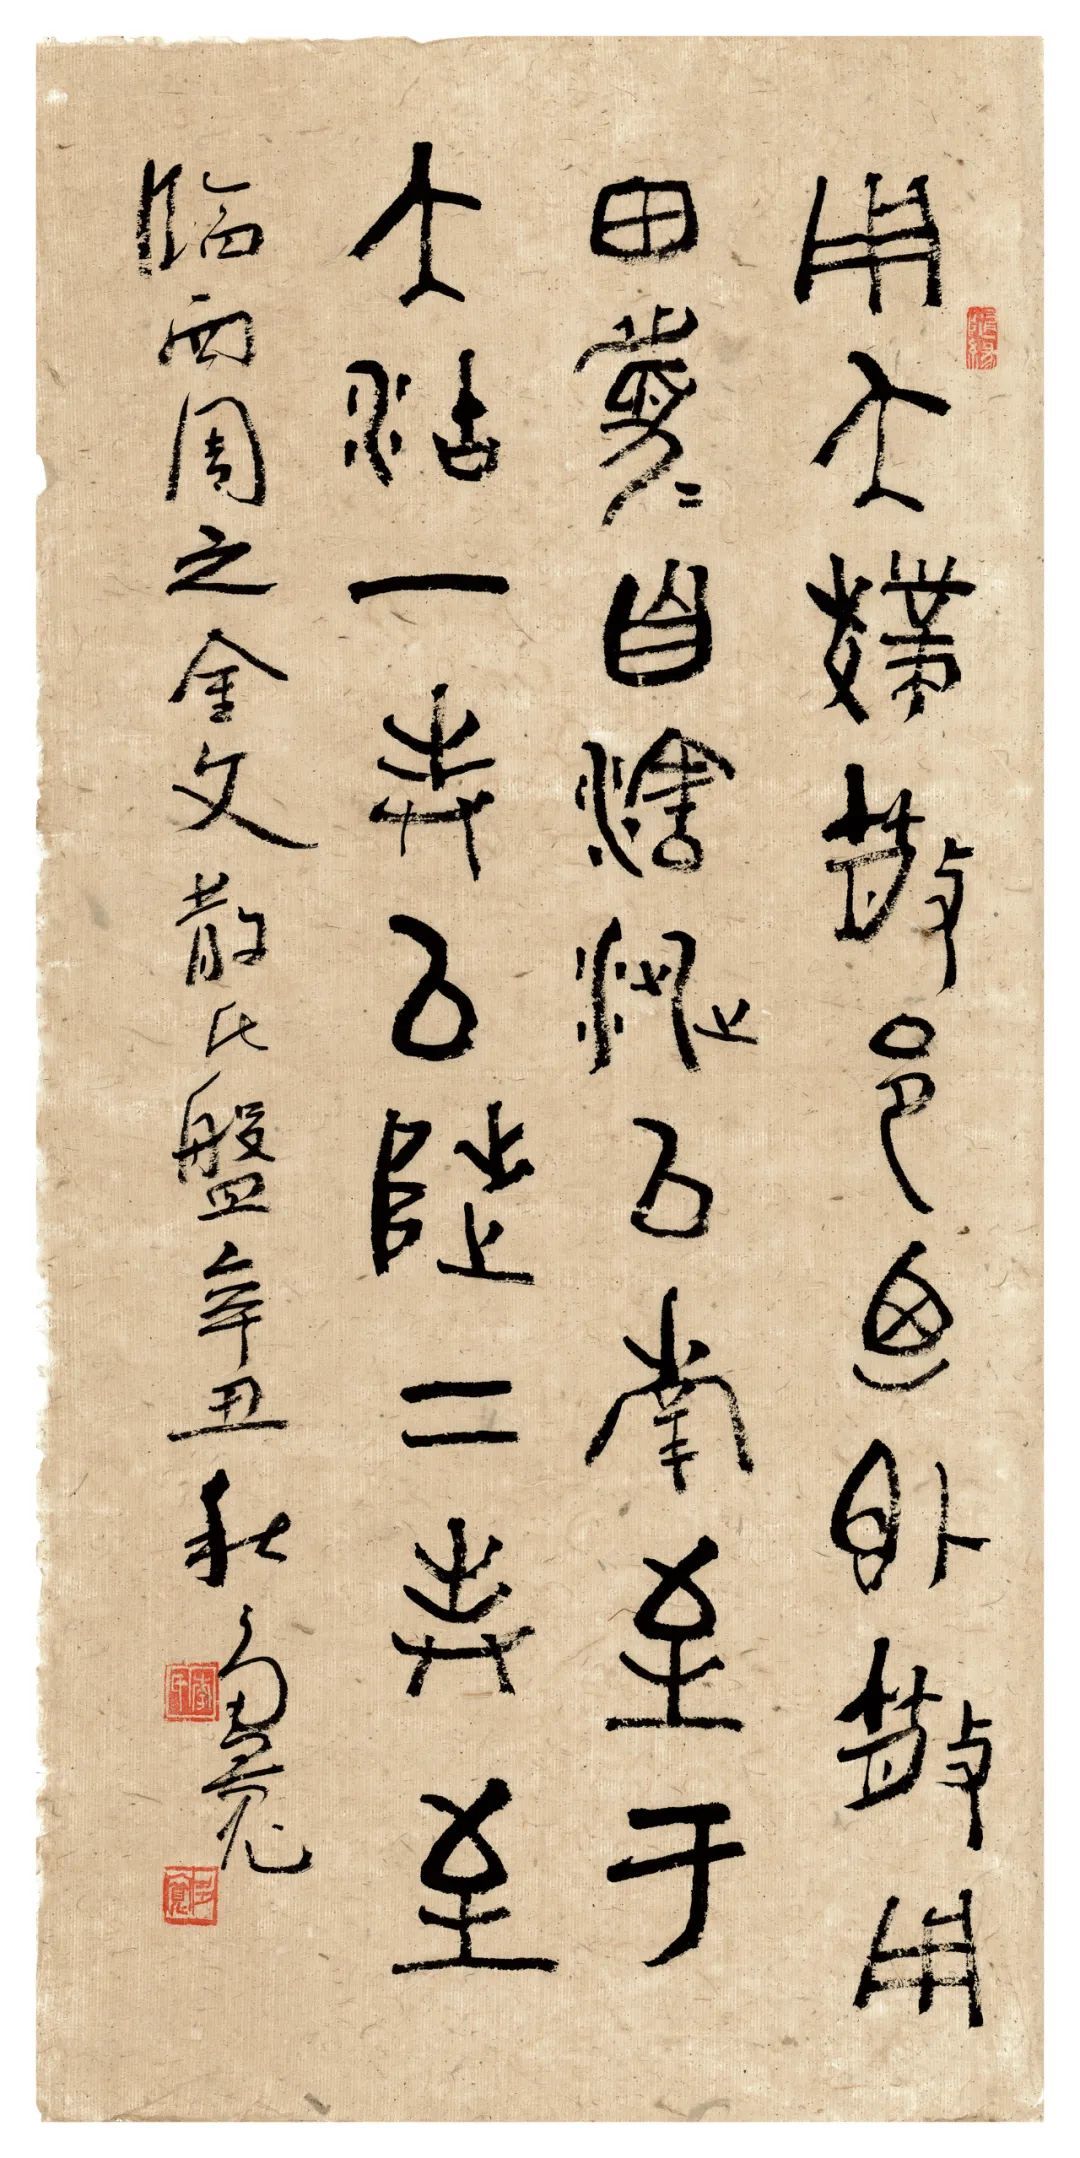 用夨撲散邑迺即散用
田眉自瀗涉以南至于
大沽一封以陟二封至
臨西周之金文散氏盤辛丑秋